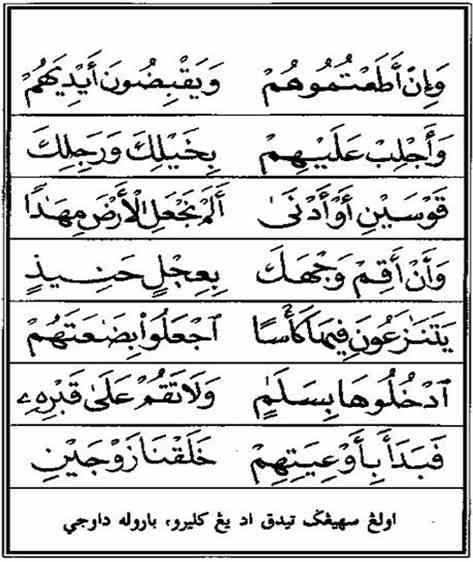 وَإِنْ أَطَعْتُمُوهُمْ وَيَقْبِضُونَ أَيْدِيَهُمْ
وَأَجْلِبْ عَلَيْهِمْ بِخَيْلِكَ وَرَجِلِكَ
قَوْسَيْنِ أَوْ أَدْنَىٰ أَلَمْ نَجْعَلِ الْأَرْضَ مِهَادًا
وَأَنْ أَقِمْ وَجْهَكَ بِعِجْلٍ حَنِيذٍ
يَتَنَازَعُونَ فِيهَا كَأْسًا اجْعَلُوا بِضَاعَتَهُمْ
ادْخُلُوهَا بِسَلَامٍ وَلَا تَقُمْ عَلَىٰ قَبْرِهِ
فَبَدَأَ بِأَوْعِيَتِهِمْ خَلَقْنَا زَوْجَيْنِ
اولڠ سهيڠݢ تيدق اد يڠ كليرو، باروله داوجي